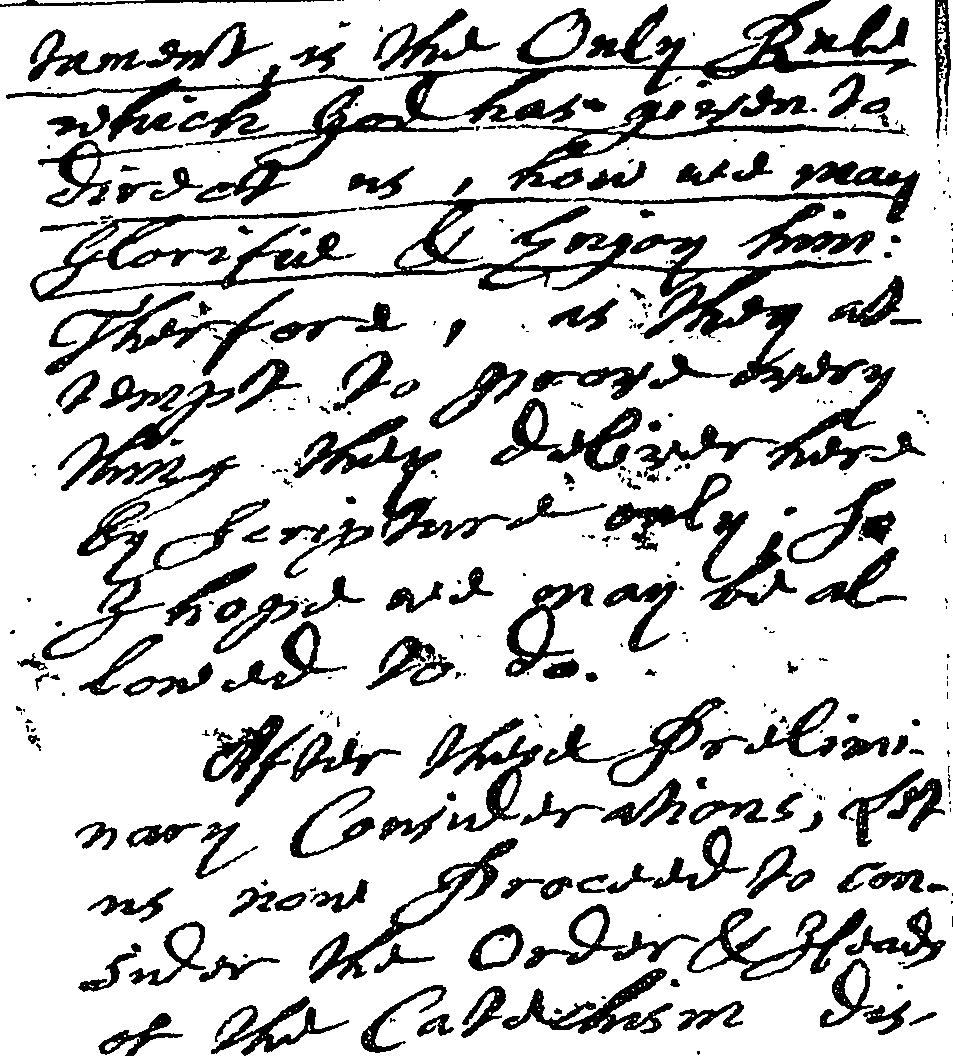 tament, is the Only Rule
which God has given to
direct us, how we may
Glorifie & Enjoy him:
Therfore, as they at-
tempt to prove every
thing they deliver here
by Scripture only; so
I hope we may be al
lowed to do.
After these Prelimi-
nary Considerations, let
us now Proceed to con-
sider the Order & Heads
of the Catechism dis-